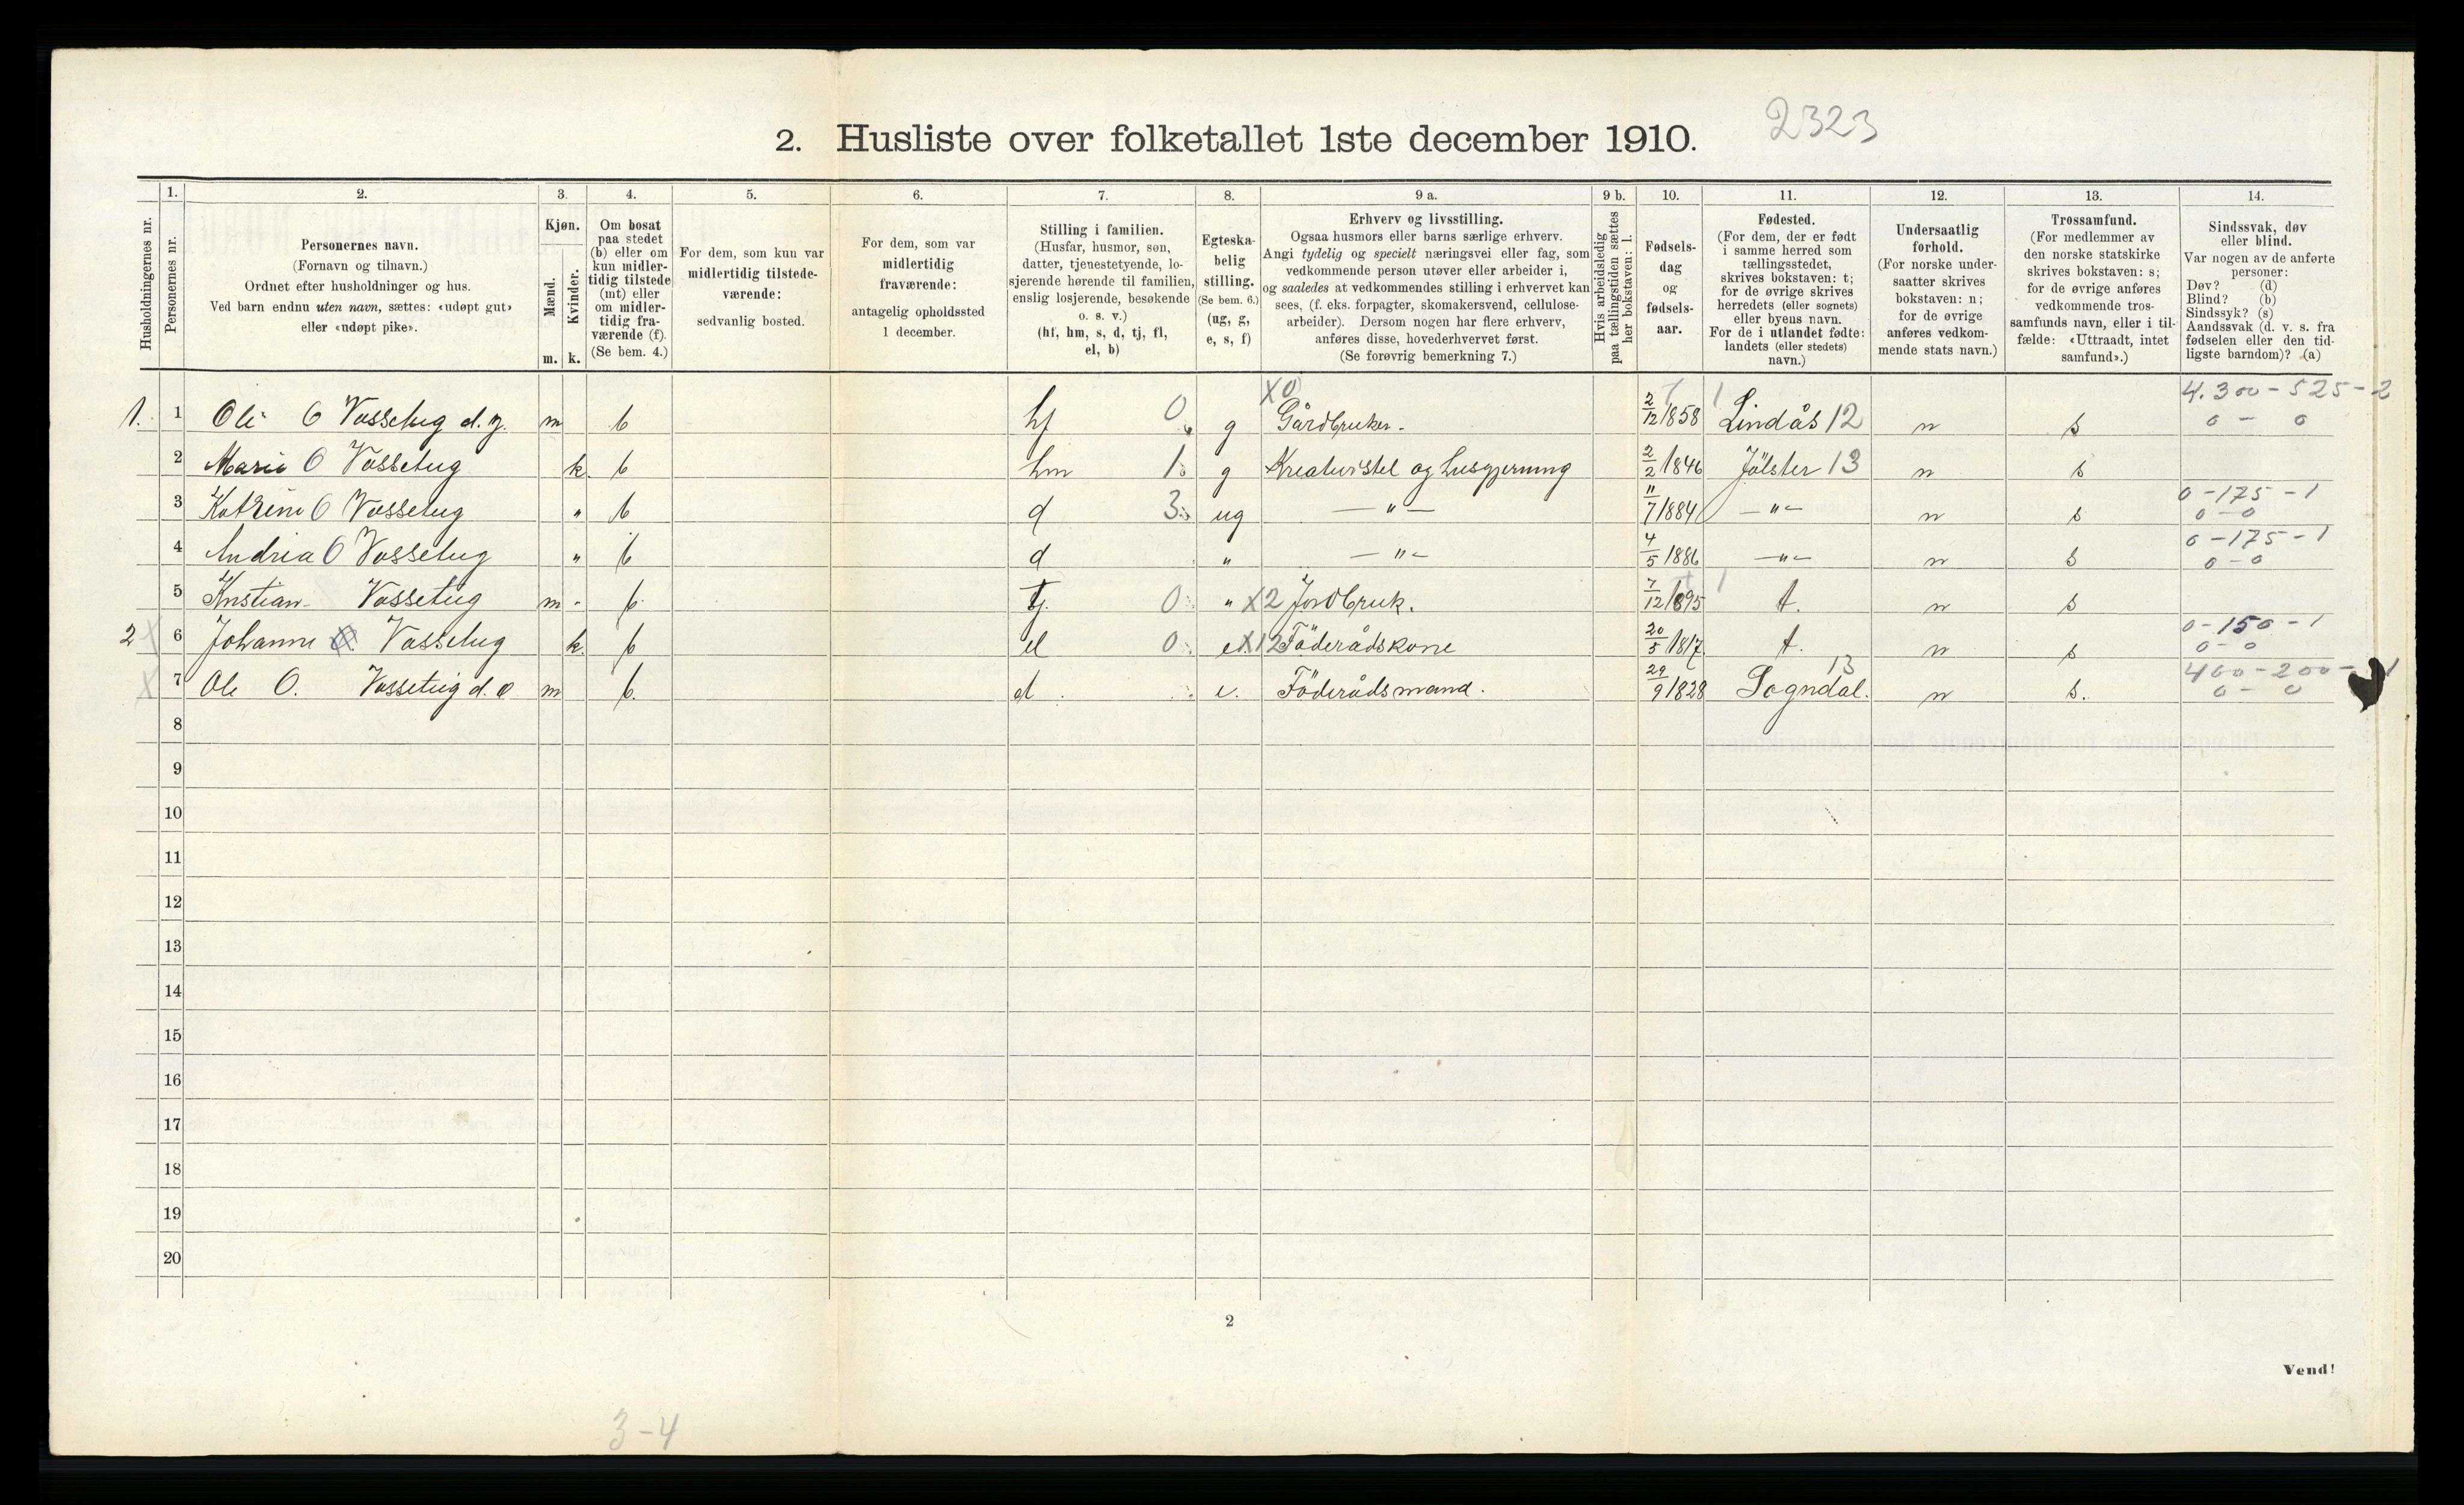 2323
2. Husliste over folketallet 1ste december 1910.
Husholdningernes nr.
1. Personernes nr.
2. Personernes navn. (Fornavn og tilnavn.) Ordnet efter husholdninger og hus. Ved barn endnu uten navn, sættes: «udøpt gut» eller «udøpt pike».
3. Kjøn. Mænd. m. Kvinder. k.
4. Om bosat paa stedet (b) eller om kun midlertidig tilstede (mt) eller om midlertidig fraværende (f). (Se bem. 4.)
5. For dem, som kun var midlertidig tilstedeværende: sedvanlig bosted.
6. For dem, som var midlertidig fraværende: antagelig opholdssted 1 december.
7. Stilling i familien. (Husfar, husmor, søn, datter, tjenestetyende, losjerende hørende til familien, enslig losjerende, besøkende o. s. v.) (hf, hm, s, d, tj, fl, el, b)
8. Egteskabelig stilling. (Se bem. 6.) (ug, g, e, s, f)
9 a. Erhverv og livsstilling. Ogsaa husmors eller barns særlige erhverv. Angi tydelig og specielt næringsvei eller fag, som vedkommende person utøver eller arbeider i, og saaledes at vedkommendes stilling i erhvervet kan sees, (f. eks. forpagter, skomakersvend, cellulosearbeider). Dersom nogen har flere erhverv, anføres disse, hovederhvervet først. (Se forøvrig bemerkning 7.)
9 b. Hvis arbeidsledig paa tællingstiden sættes her bokstaven: l.
10. Fødselsdag og fødselsaar.
11. Fødested. (For dem, der er født i samme herred som tællingsstedet, skrives bokstaven: t; for de øvrige skrives herredets (eller sognets) eller byens navn. For de i utlandet fødte: landets (eller stedets) navn.)
12. Undersaatlig forhold. (For norske undersaatter skrives bokstaven: n; for de øvrige anføres vedkommende stats navn.)
13. Trossamfund. (For medlemmer av den norske statskirke skrives bokstaven: s; for de øvrige anføres vedkommende trossamfunds navn, eller i tilfælde: «Uttraadt, intet samfund».)
14. Sindssvak, døv eller blind. Var nogen av de anførte personer: Døv? (d) Blind? (b) Sindssyk? (s) Aandssvak (d. v. s. fra fødselen eller den tidligste barndom)? (a)
1. 1 Ole O Vassetug d. y. m b hf 0 g X0 Gårdbruker. 2/12 1858 Lindås 12 n s 4.300-525-2 0-0
2 Marie O Vassetug k. b hm 1 g Kreaturstel og husgjerning 2/2 1846 Jölster 13 n s
3 Katrine O Vassetug " b d 3 ug —"— 11/7 1884 —"— n s 0-175-1 0-0
4 Andria O Vassetug " b d " —"— 4/5 1886 —"— n s 0-175-1 0-0
5 Kristian Vassetug m b tj. 0 " X2 Jordbruk. 7/12 1895 t. n s
2 X 6 Johanne Vassetug k. b el 0 e X12 Föderådskone 20/5 1817 t. n s 0-150-1 0-0
X 7 Ole O. Vassetug d. e m b. el e. Föderådsmand. 29/9 1828 Sogndal. 13 n s. 400-200-1 0-0
8
9
10
11
12
13
14
15
16
17
18
19
20
2
Vend!
3-4